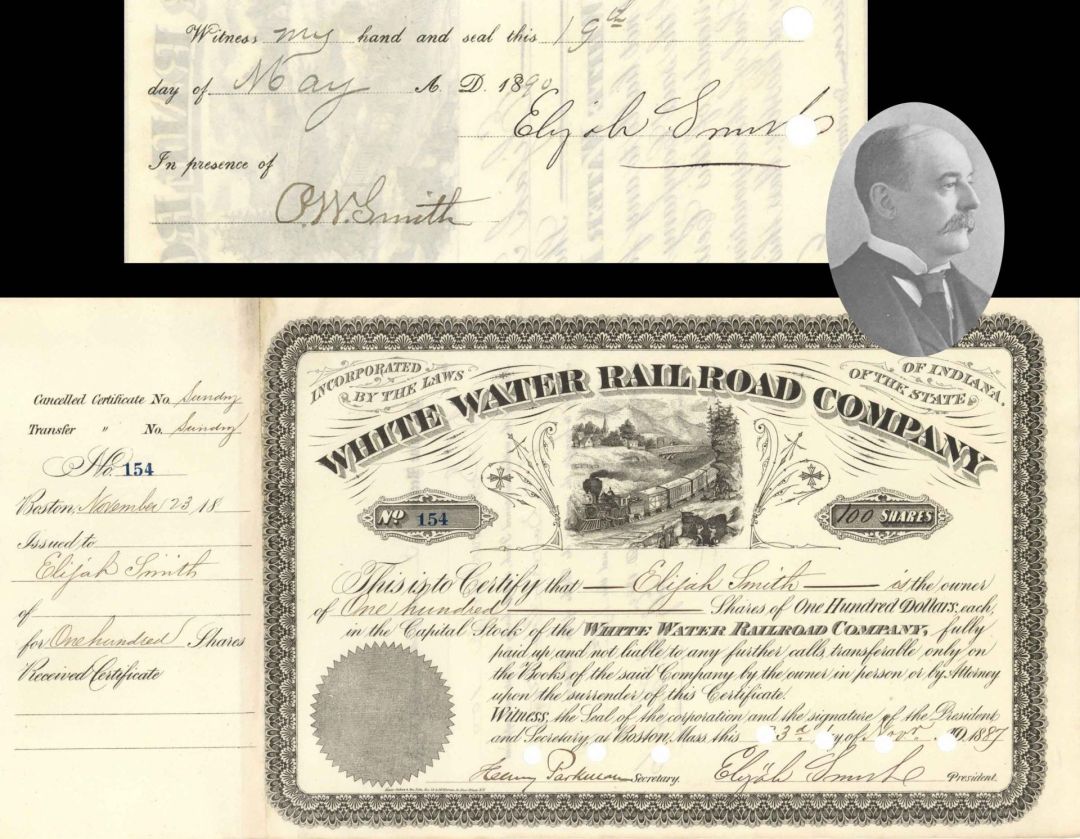 Witness my hand and seal this 19th
day of May A. D. 1890
Elijah Smith
In presence of
O.W. Smith
Cancelled Certificate No. Sundry
Transfer " No. Sundry
No. 154
Boston, November 23 18
Issued to
Elijah Smith
of
for One hundred Shares
Received Certificate
INCORPORATED BY THE LAWS
OF THE STATE OF INDIANA.
WHITE WATER RAILROAD COMPANY
No 154
100 SHARES
This is to Certify that Elijah Smith is the owner
of One hundred Shares of One Hundred Dollars, each,
in the Capital Stock of the WHITE WATER RAILROAD COMPANY, fully
paid up, and not liable to any further calls, transferable only on
the Books of the said Company by the owner in person or by Attorney
upon the surrender of this Certificate.
Witness, the Seal of the corporation and the signature of the President
and Secretary, at Boston, Mass. this 3d day of Novr A.D. 1887
Henry Parkman Secretary. Elijah Smith President.